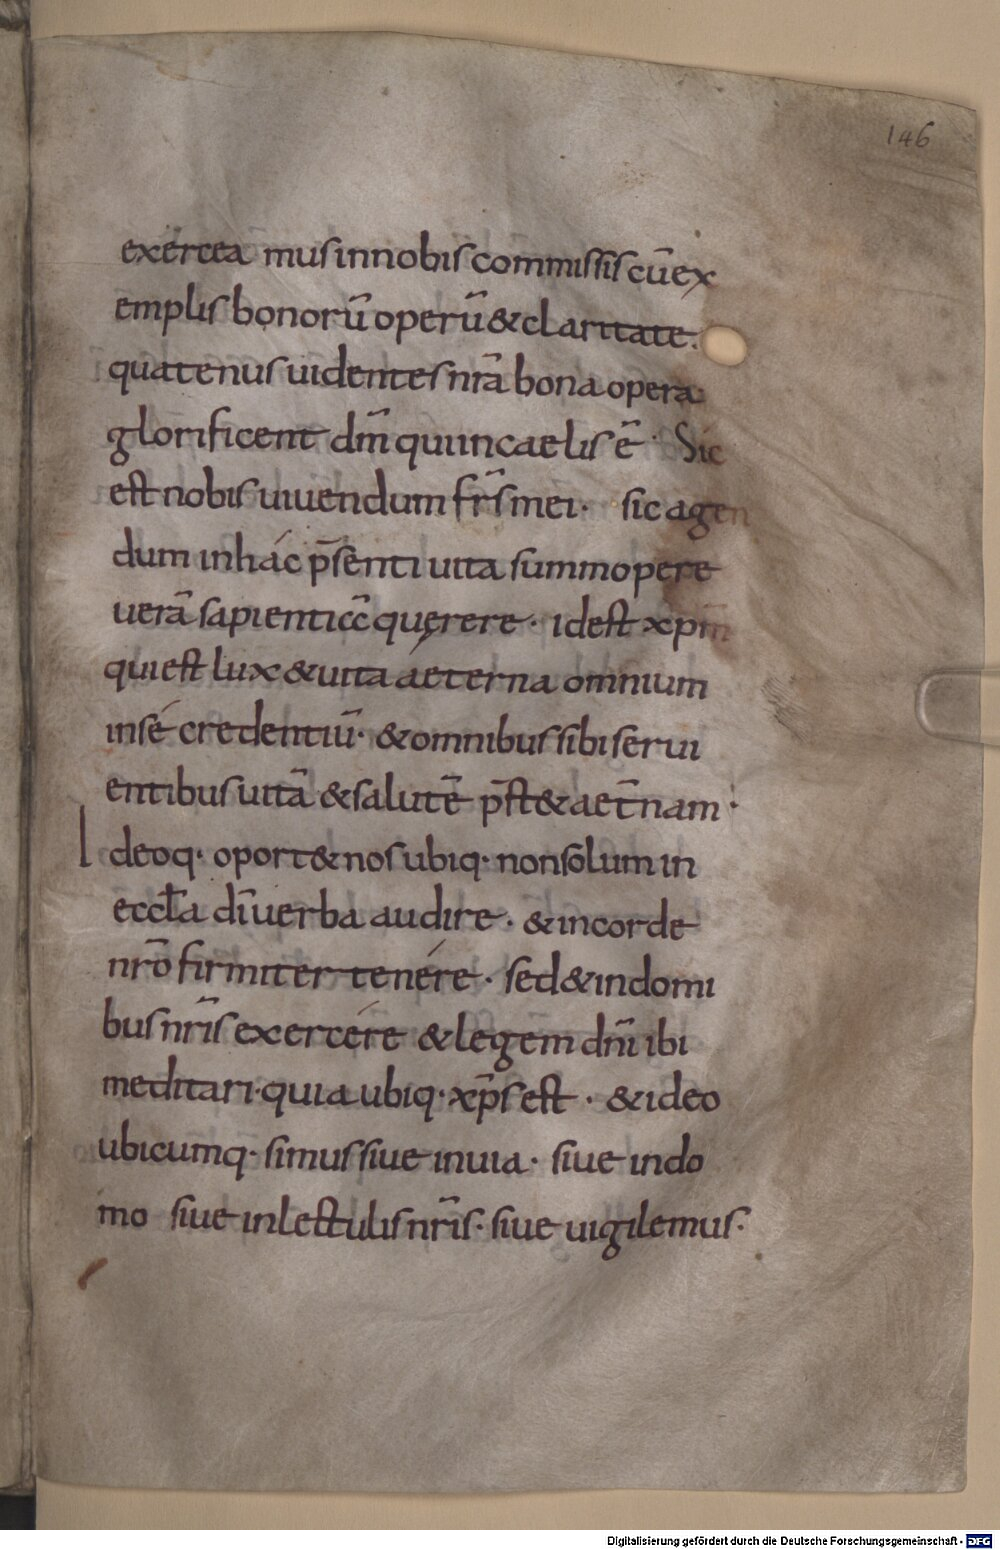 146
exercea musinnobiscommissis cūex
emplis bonorū operū & claritate.
quatenus uidentes nr̄a bona opera·
glorificent dm̄ quiincaelis ē· Sic
est nobis uiuendum fr̄s mei· sic agen
dum inhác p̄senti uita summopere
uerā sapientiā quęrere· idest xpm̄
quiest lux & uita aeterna omnium
insé credentiū· & omnibus sibi serui
entibus uitā & salutē p̄st& aet̄nam·
Ideoq· oport& nos ubiq· nonsolum in
eccl̄a dī uerba audire· & incorde
nr̄o firmiter tenére· sed & indomi
bus nr̄is exercére & legem dn̄i ibi
meditari· quia ubiq· xp̄s est· & ideo
ubicumq· simus siue inuia· siue indo
mo siue inlectulis nr̄is· siue uigilemus·
Digitalisierung gefördert durch die Deutsche Forschungsgemeinschaft - DFG